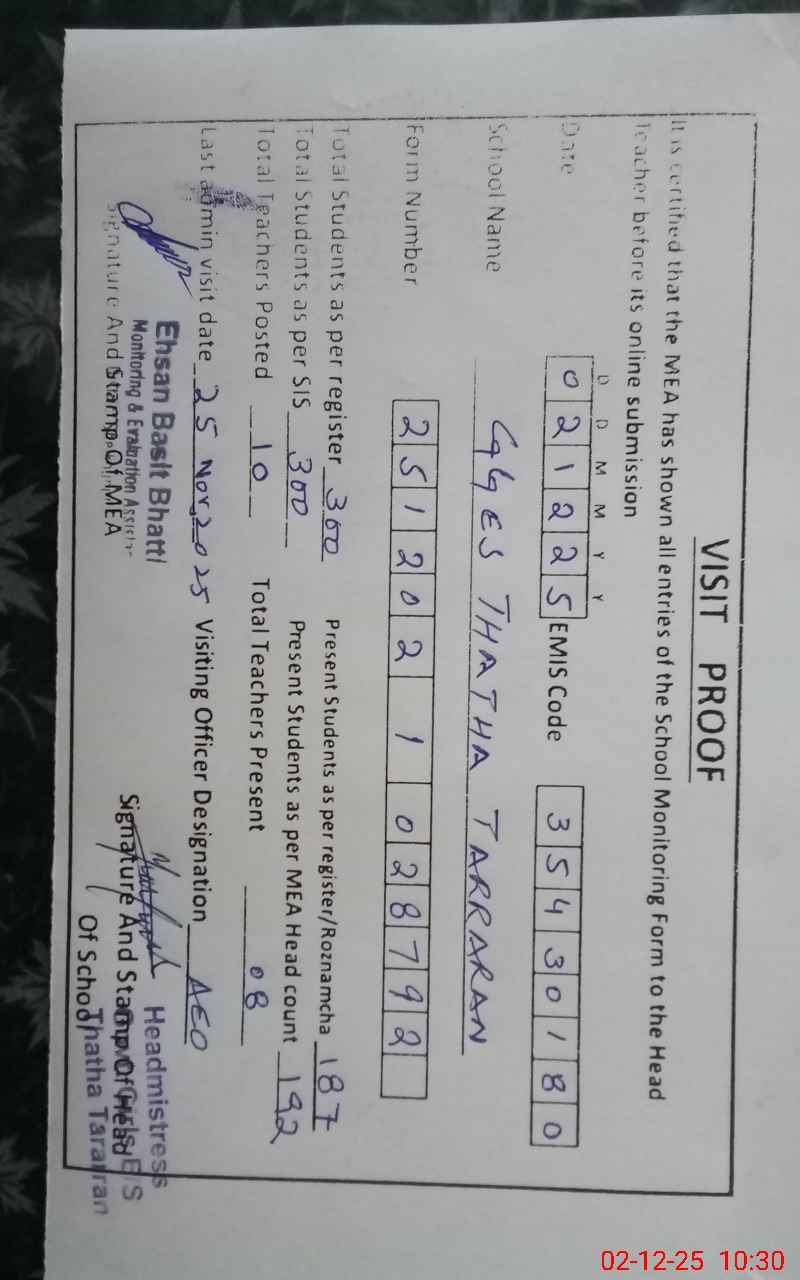 VISIT PROOF
It is certified that the MEA has shown all entries of the School Monitoring Form to the Head
Teacher before its online submission
D D M M Y Y
Date 0 2 1 2 2 5 EMIS Code 3 5 4 3 0 1 8 0
School Name GGES THATHA TARRARAN
Form Number 2 5 1 2 0 2 1 0 2 8 7 9 2
Total Students as per register 300 Present Students as per register/Roznamcha 187
Total Students as per SIS 300 Present Students as per MEA Head count 192
Total Teachers Posted 10 Total Teachers Present 08
Last admin visit date 25 Nov,2025 Visiting Officer Designation AEO
Ehsan Basit Bhatti
Monitoring & Evaluation Assistant
Signature And Stamp Of MEA
Headmistress
Signature And Stamp Of Head
Of School
Thatha Tararran
02-12-25 10:30